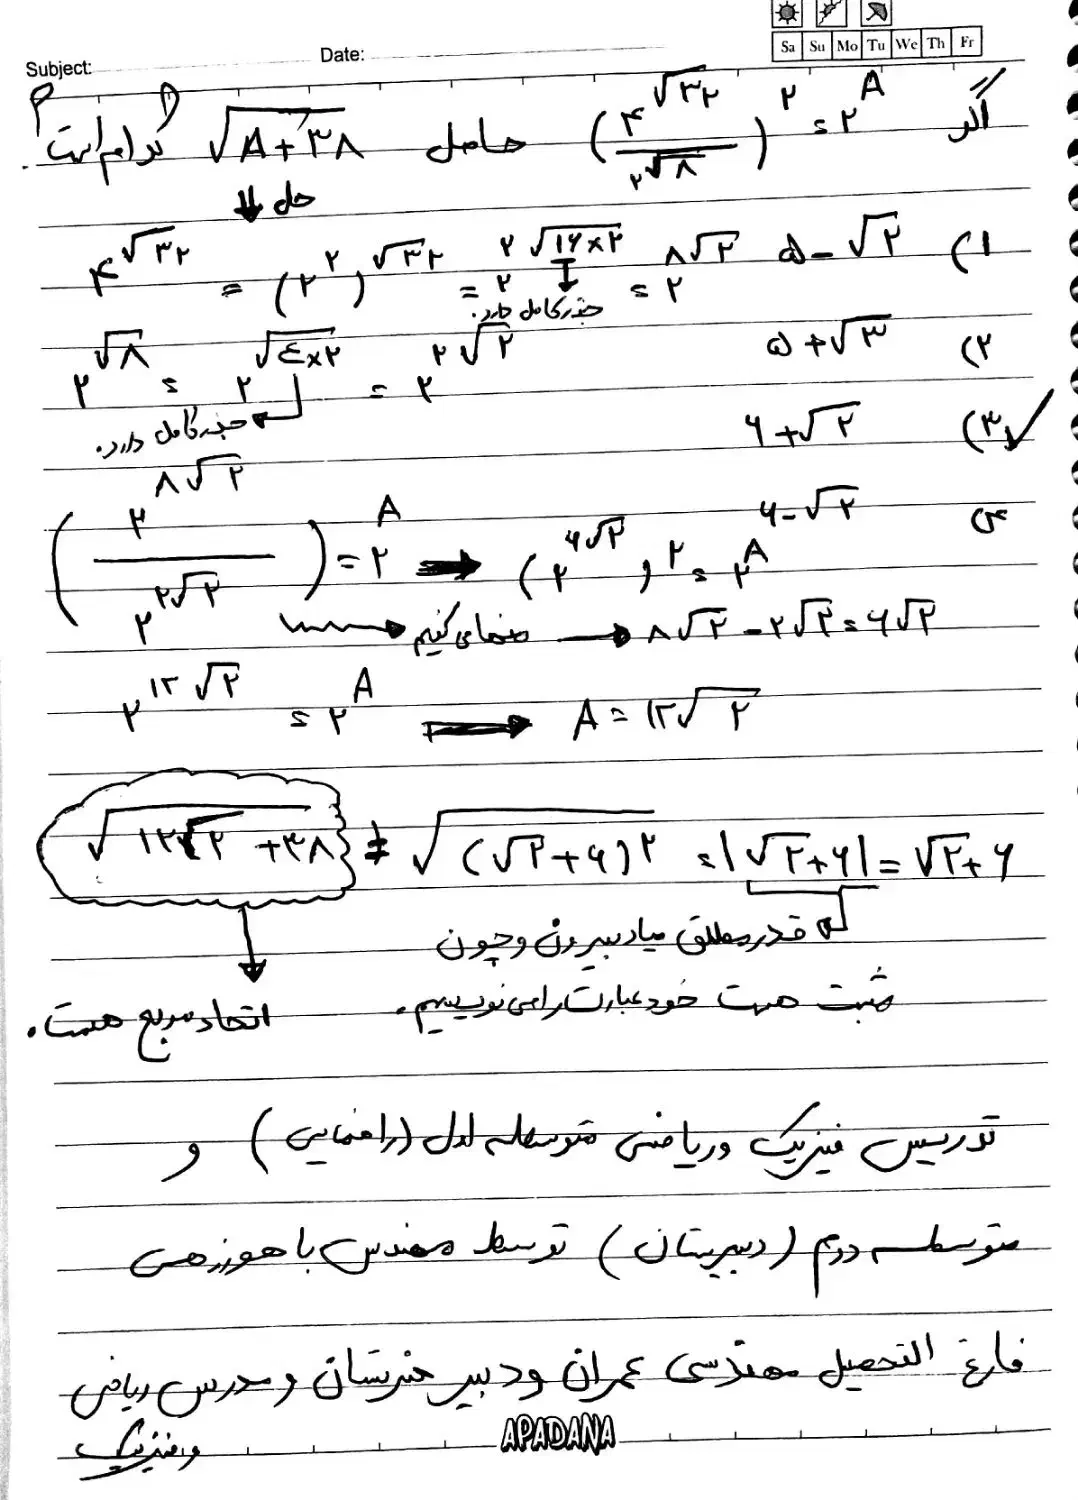 Sa Su Mo Tu We Th Fr
Subject: Date:
اگر (۴^√۳۲ / ۲^√۸)^۲ = ۲^A حاصل √(A+۳۸) کدام است؟
حل
۱) ۵-√۲
۴^√۳۲ = (۲^۲)^√۳۲ = ۲^۲√(۱۶×۲) = ۲^۸√۲
جذر کامل دارد.
۲) ۵+√۳
۲^√۸ = ۲^√(٤×۲) = ۲^۲√۲
جذر کامل دارد.
۳) ۶+√۲ ✓
۴) ۶-√۲
(۲^۸√۲ / ۲^۲√۲) = ۲^A ⟹ (۲^۶√۲)^۲ = ۲^A
منهای کنیم → ۸√۲ - ۲√۲ = ۶√۲
۲^۱۲√۲ = ۲^A ⟹ A = ۱۲√۲
√(۱۲√۲ + ۳۸) = √((√۲+۶)^۲) = |√۲+۶| = √۲+۶
قدرمطلق میاد بیرون و چون
مثبت هست خود عبارت را می نویسیم.
اتحاد مربع هست.
تدریس فیزیک و ریاضی متوسطه اول (راهنمایی) و
متوسطه دوم (دبیرستان) توسط مهندس
فارغ التحصیل مهندسی عمران و دبیر هنرستان و مدرس ریاضی
و فیزیک
APADANA